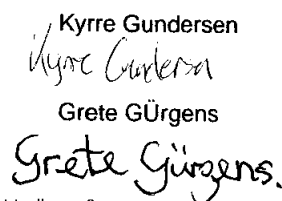 Kyrre Gundersen
Kyrre Gundersen
Grete GÜrgens
Grete Gürgens.